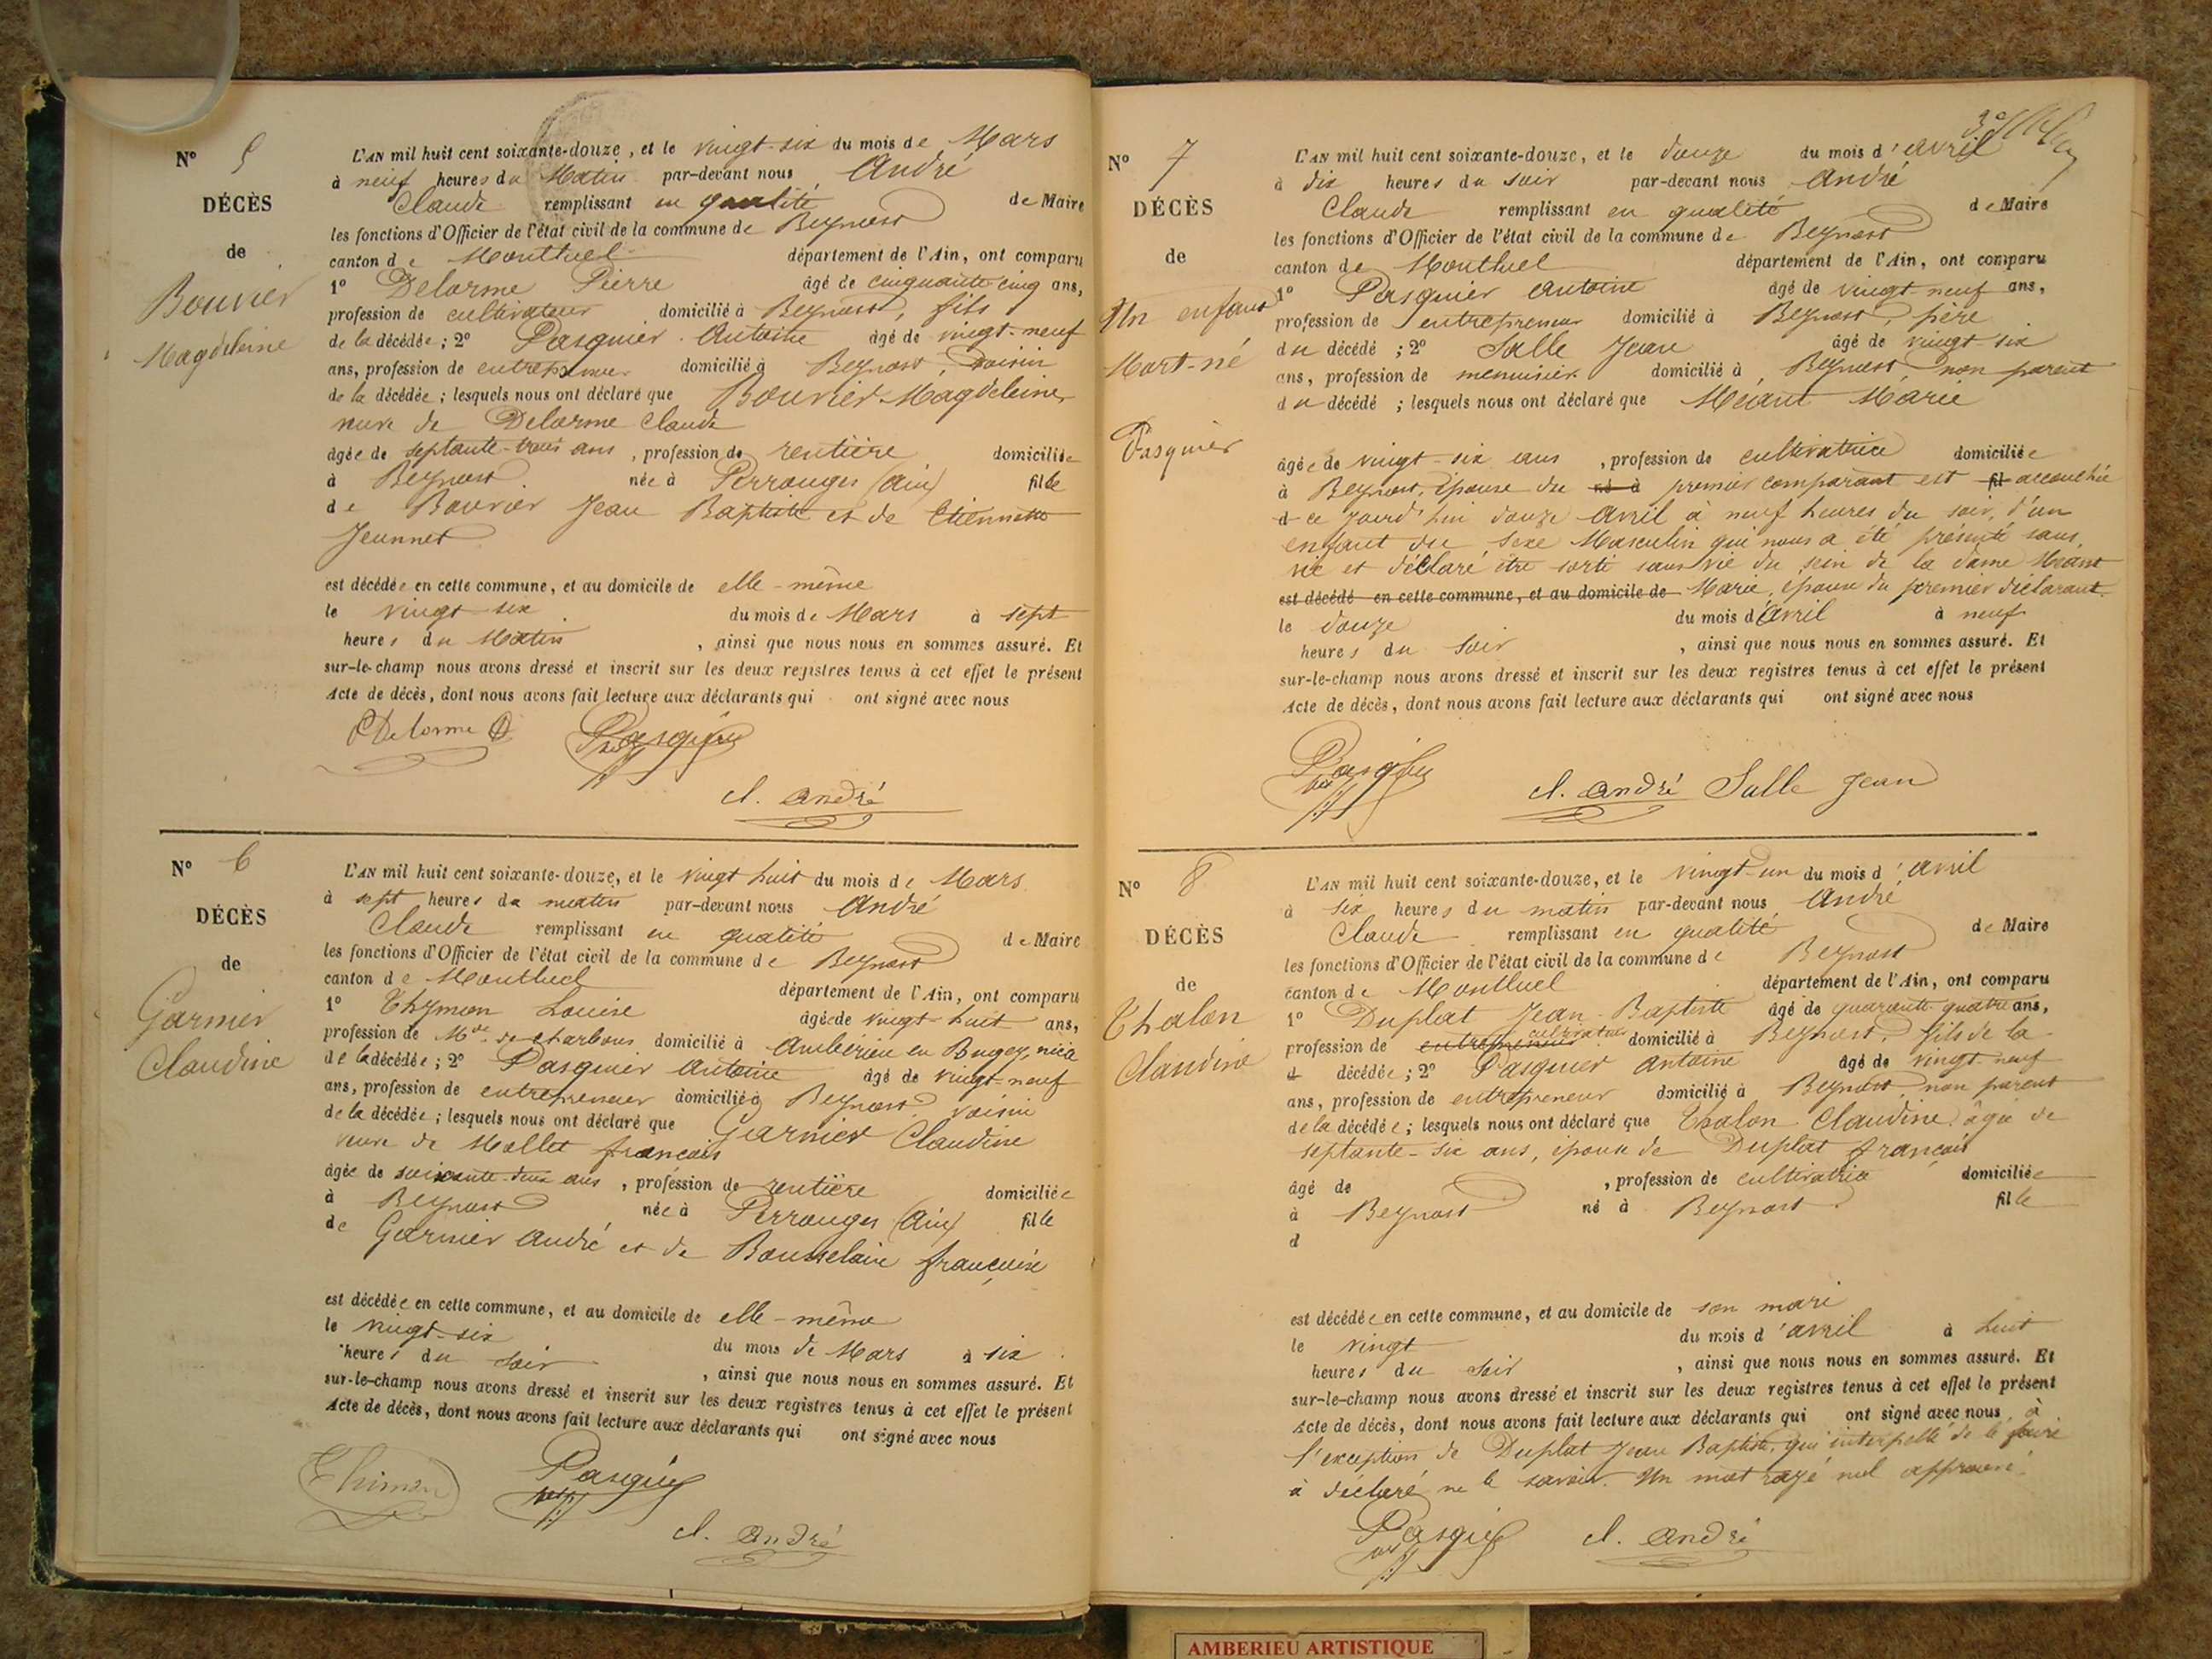 Nº 5
DÉCÈS
de
Bouvier
Magdeleine
L'AN mil huit cent soixante-douze, et le vingt-six du mois de Mars
à neuf heures du Matin par-devant nous André
Claude remplissant en qualité de Maire
les fonctions d'Officier de l'état civil de la commune de Beynost
canton de Montluel département de l'Ain, ont comparu
1º Delorme Pierre âgé de cinquante cinq ans,
profession de cultivateur domicilié à Beynost, fils
de la décédée; 2º Pasquier Antoine âgé de vingt-neuf
ans, profession de entrepreneur domicilié à Beynost, voisin
de la décédée; lesquels nous ont déclaré que Bouvier Magdeleine
veuve de Delorme Claude
âgée de septante-trois ans, profession de rentière domiciliée
à Beynost née à Perrouges (Ain) fille
de Bouvier Jean Baptiste et de Etiennette
Jeunnet
est décédée en cette commune, et au domicile de elle-même
le vingt six du mois de Mars à sept
heures du Matin, ainsi que nous nous en sommes assuré. Et
sur-le-champ nous avons dressé et inscrit sur les deux registres tenus à cet effet le présent
Acte de décès, dont nous avons fait lecture aux déclarants qui ont signé avec nous
Delorme Pasquier
Cl. André
Nº 6
DÉCÈS
de
Garnier
Claudine
L'AN mil huit cent soixante-douze, et le vingt huit du mois de Mars
à sept heures du matin par-devant nous André
Claude remplissant en qualité de Maire
les fonctions d'Officier de l'état civil de la commune de Beynost
canton de Montluel département de l'Ain, ont comparu
1º Thymon Louise âgée de vingt-huit ans,
profession de Mde de charbons domicilié à Amberieu en Bugey, nièce
de la décédée; 2º Pasquier Antoine âgé de vingt-neuf
ans, profession de entrepreneur domicilié à Beynost voisin
de la décédée; lesquels nous ont déclaré que Garnier Claudine
veuve de Mollet françois
âgée de soixante-deux ans, profession de rentière domiciliée
à Beynost née à Perrouges (Ain) fille
de Garnier André et de Bousselain françoise
est décédée en cette commune, et au domicile de elle-même
le vingt-six du mois de Mars à six
heures du soir, ainsi que nous nous en sommes assuré. Et
sur-le-champ nous avons dressé et inscrit sur les deux registres tenus à cet effet le présent
Acte de décès, dont nous avons fait lecture aux déclarants qui ont signé avec nous
Thimon Pasquier
Cl. André
Nº 7
DÉCÈS
de
Un enfant
Mort-né
Pasquier
L'AN mil huit cent soixante-douze, et le douze du mois d'avril
à dix heures du soir par-devant nous André
Claude remplissant en qualité de Maire
les fonctions d'Officier de l'état civil de la commune de Beynost
canton de Montluel département de l'Ain, ont comparu
1º Pasquier Antoine âgé de vingt neuf ans,
profession de entrepreneur domicilié à Beynost, père
du décédé; 2º Salle Jean âgé de vingt six
ans, profession de menuisier domicilié à Beynost non parent
du décédé; lesquels nous ont déclaré que Méant Marie
âgée de vingt-six ans, profession de cultivatrice domiciliée
à Beynost, épouse du né à premier comparant est fil accouchée
d ce jourd'hui douze Avril à neuf heures du soir, d'un
enfant du sexe Masculin qui nous a été présenté sans
vie et déclaré être sorti sans vie du sein de la dame Méant
est décédé en cette commune, et au domicile de Marie, épouse du premier déclarant.
le douze du mois d'Avril à neuf
heures du soir, ainsi que nous nous en sommes assuré. Et
sur-le-champ nous avons dressé et inscrit sur les deux registres tenus à cet effet le présent
Acte de décès, dont nous avons fait lecture aux déclarants qui ont signé avec nous
Pasquier Cl. André Salle Jean
Nº 8
DÉCÈS
de
Thalon
Claudine
L'AN mil huit cent soixante-douze, et le vingt-un du mois d'avril
à six heures du matin par-devant nous André
Claude remplissant en qualité de Maire
les fonctions d'Officier de l'état civil de la commune de Beynost
canton de Montluel département de l'Ain, ont comparu
1º Duplat Jean-Baptiste âgé de quarante-quatre ans,
profession de entrepreneur cultivateur domicilié à Beynost, fils de la
d décédée; 2º Pasquier Antoine âgé de vingt-neuf
ans, profession de entrepreneur domicilié à Beynost, non parent
de la décédée; lesquels nous ont déclaré que Thalon Claudine âgée de
septante-six ans, épouse de Duplat françois
âgé de, profession de cultivatrice domiciliée
à Beynost né à Beynost fille
d
est décédée en cette commune, et au domicile de son mari
le vingt du mois d'avril à huit
heures du soir, ainsi que nous nous en sommes assuré. Et
sur-le-champ nous avons dressé et inscrit sur les deux registres tenus à cet effet le présent
Acte de décès, dont nous avons fait lecture aux déclarants qui ont signé avec nous à
l'exception de Duplat Jean Baptiste, qui interpellé de le faire
a déclaré ne le savoir. Un mot rayé nul approuvé.
Pasquier Cl. André
AMBERIEU ARTISTIQUE